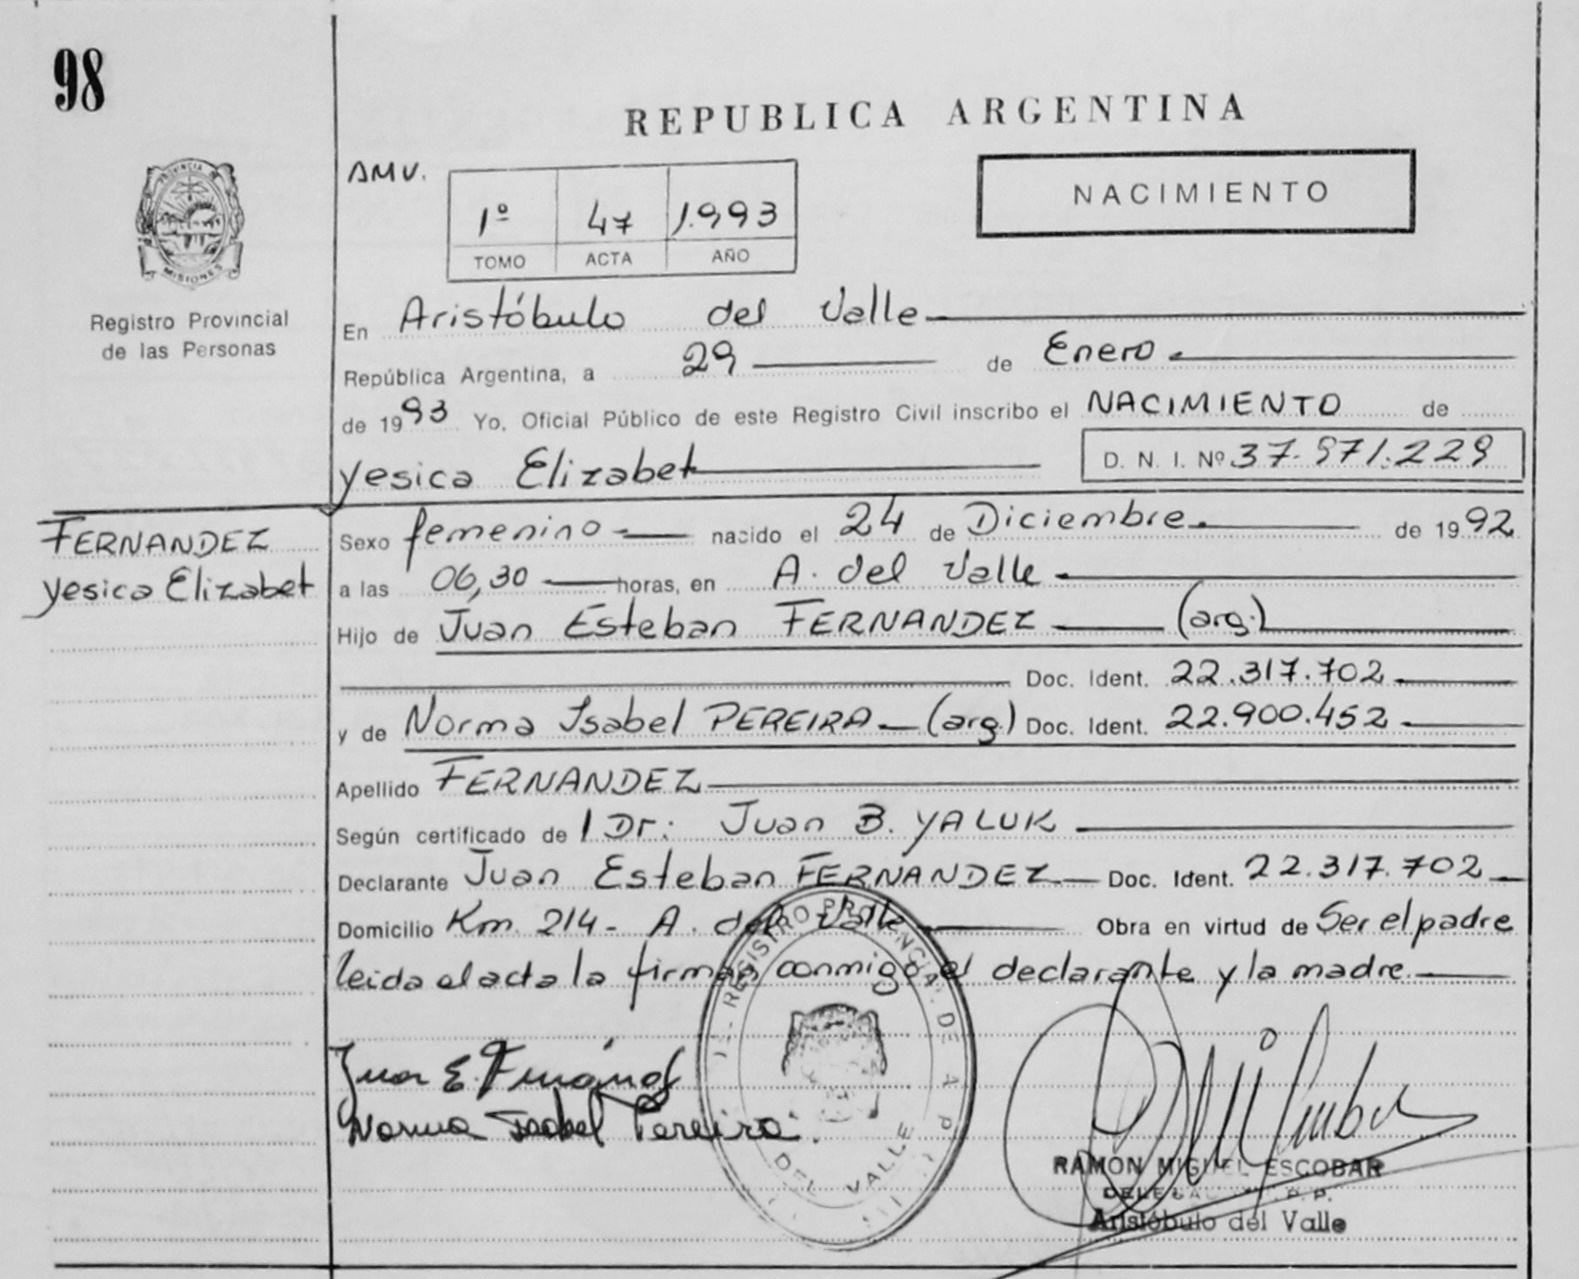 98
REPUBLICA ARGENTINA
AMV.
NACIMIENTO
1º 47 1.993
TOMO ACTA AÑO
PROVINCIA DE
MISIONES
Registro Provincial
de las Personas
En Aristóbulo del Valle
República Argentina, a 29 de Enero
de 1993 Yo, Oficial Público de este Registro Civil inscribo el NACIMIENTO de
yesica Elizabet D. N. I. Nº 37.971.229
FERNANDEZ
yesica Elizabet
Sexo femenino nacido el 24 de Diciembre de 1992
a las 06,30 horas, en A. del Valle
Hijo de Juan Esteban FERNANDEZ (arg.)
Doc. Ident. 22.317.702
y de Norma Isabel PEREIRA (arg.) Doc. Ident. 22.900.452
Apellido FERNANDEZ
Según certificado de / Dr: Juan B. YALUK
Declarante Juan Esteban FERNANDEZ Doc. Ident. 22.317.702
Domicilio Km. 214 - A. del Valle Obra en virtud de Ser el padre
leida el acta la firman conmigo el declarante y la madre.
Juan E. Fernández
Norma Isabel Pereira.
REGISTRO PROVINCIAL DE
DEL VALLE
RAMON MIGUEL ESCOBAR
Aristóbulo del Valle